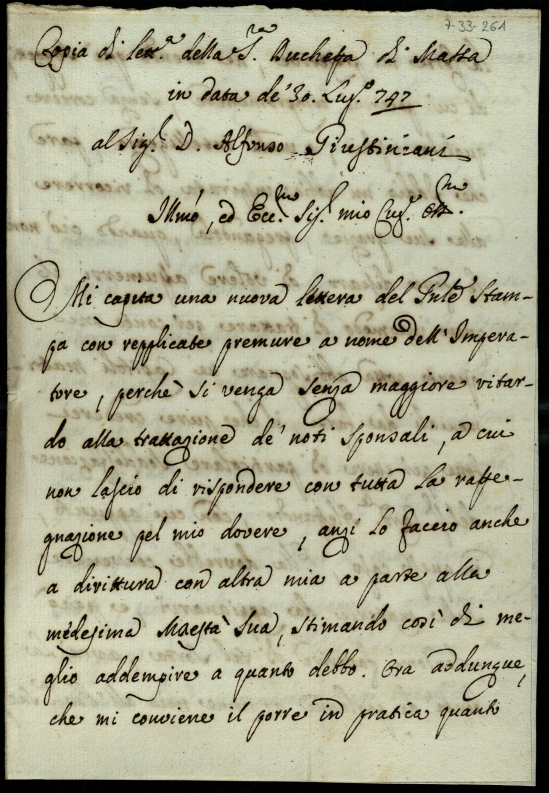 7-33-261
Copia di lett.ª della S.ra Duchessa di Massa
in data de' 30. Lug.º 747
al Sig.r D. Alfonso Giustiniani
Illmo, ed Ecc.mo Sig.r mio Cug.
Mi capita una nuova lettera del Gnle Stam-
pa con repplicate premure a nome dell' Impera-
tore, perchè si venga senza maggiore ritar-
do alla trattazione de' noti sponsali, a cui
non lascio di rispondere con tutta la rasse-
gnazione pel mio dovere, anzi lo faccio anche
a dirittura con altra mia a parte alla
medesima Maestà Sua, stimando così di me-
glio addempire a quanto debbo. Ora addunque,
che mi conviene il porre in pratica quanto